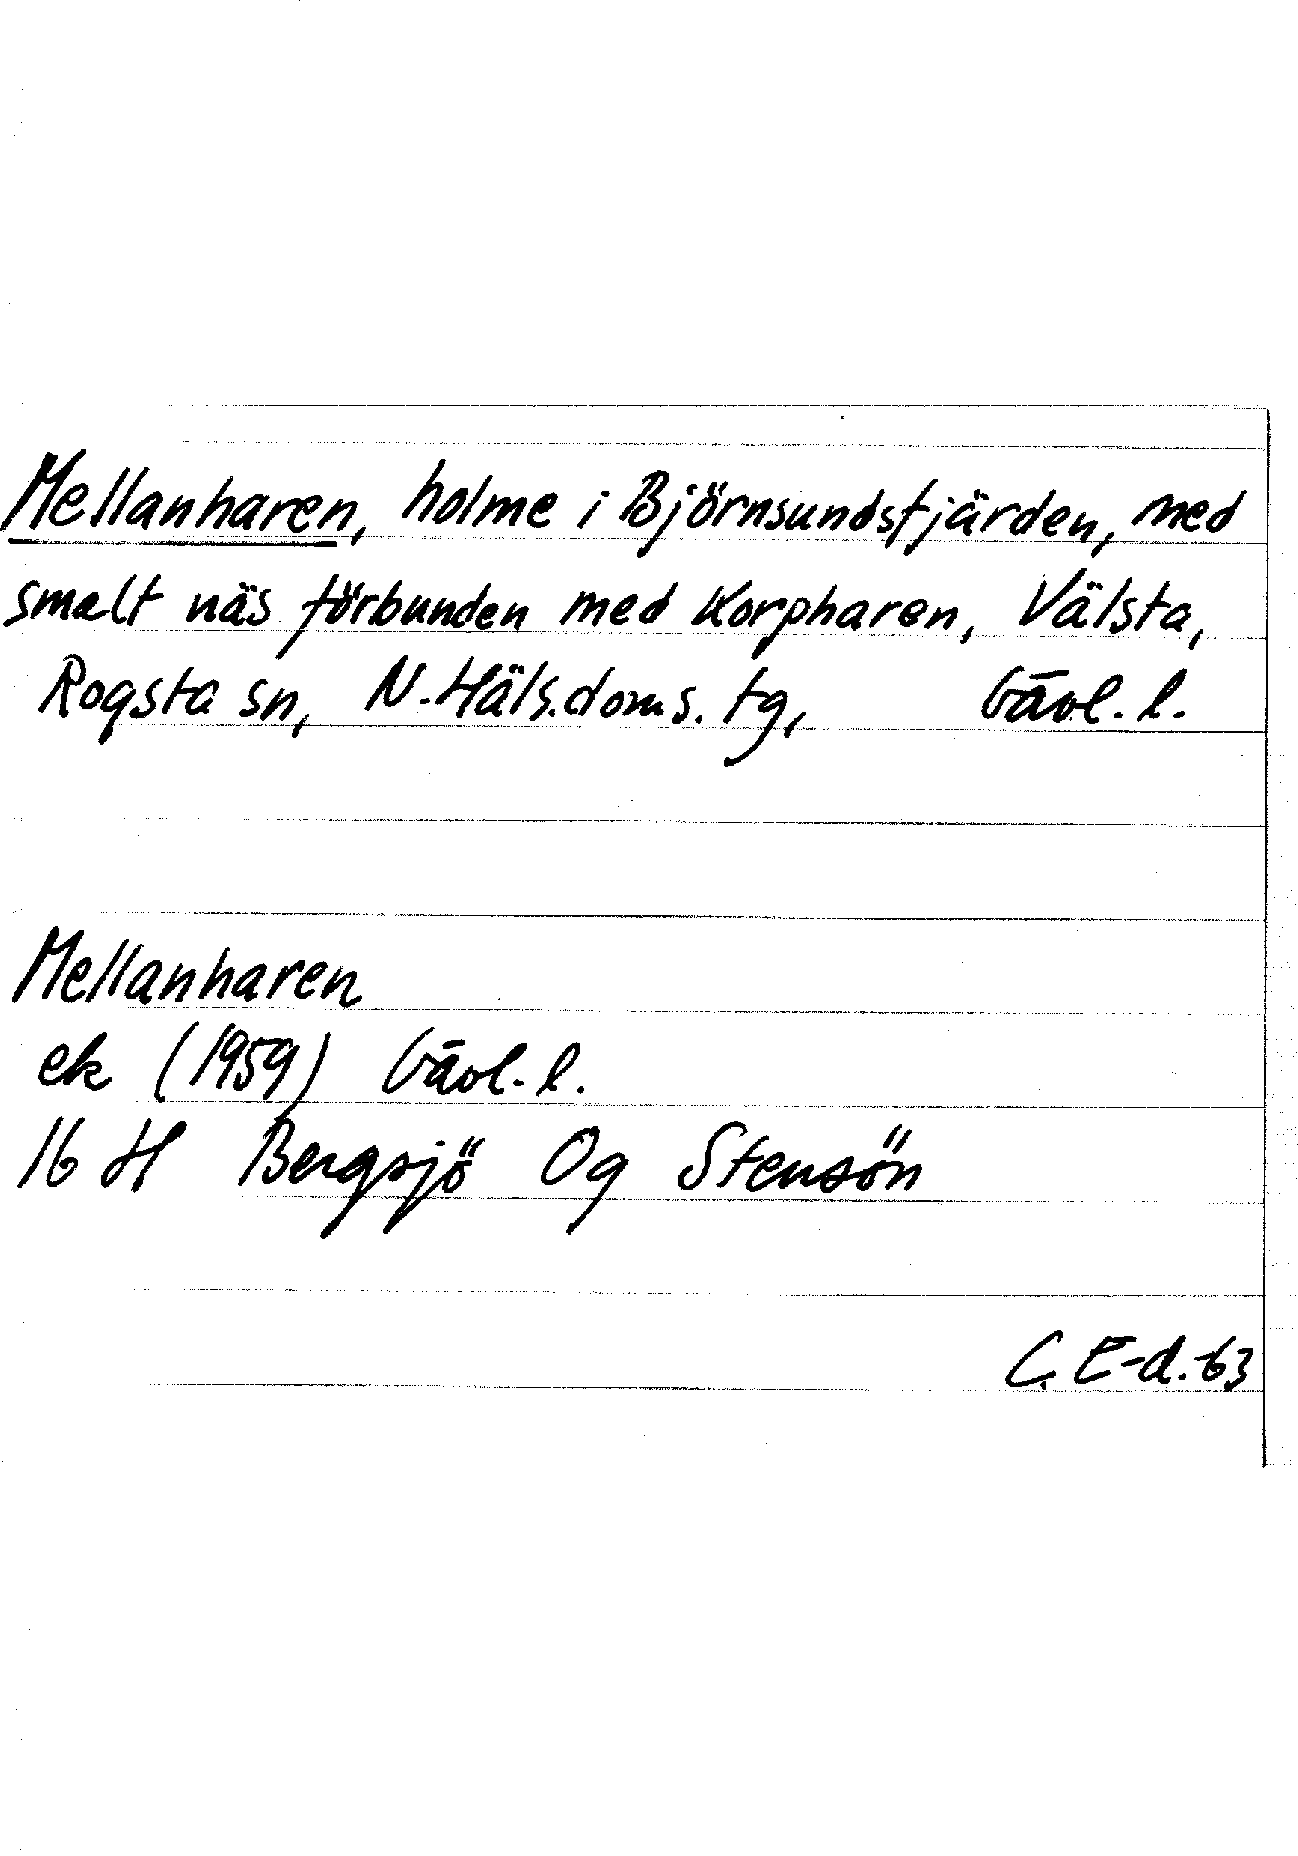 Mellanharen, holme i Björnsundsfjärden, med
smalt näs förbunden med Korpharen, Välsta,
Rogsta sn, N. Häls. doms. tg, Gävl. l.
Mellanharen
ek (1959) Gävl. l.
16 H Bergsjö Og Stensön
C. E-d. -63